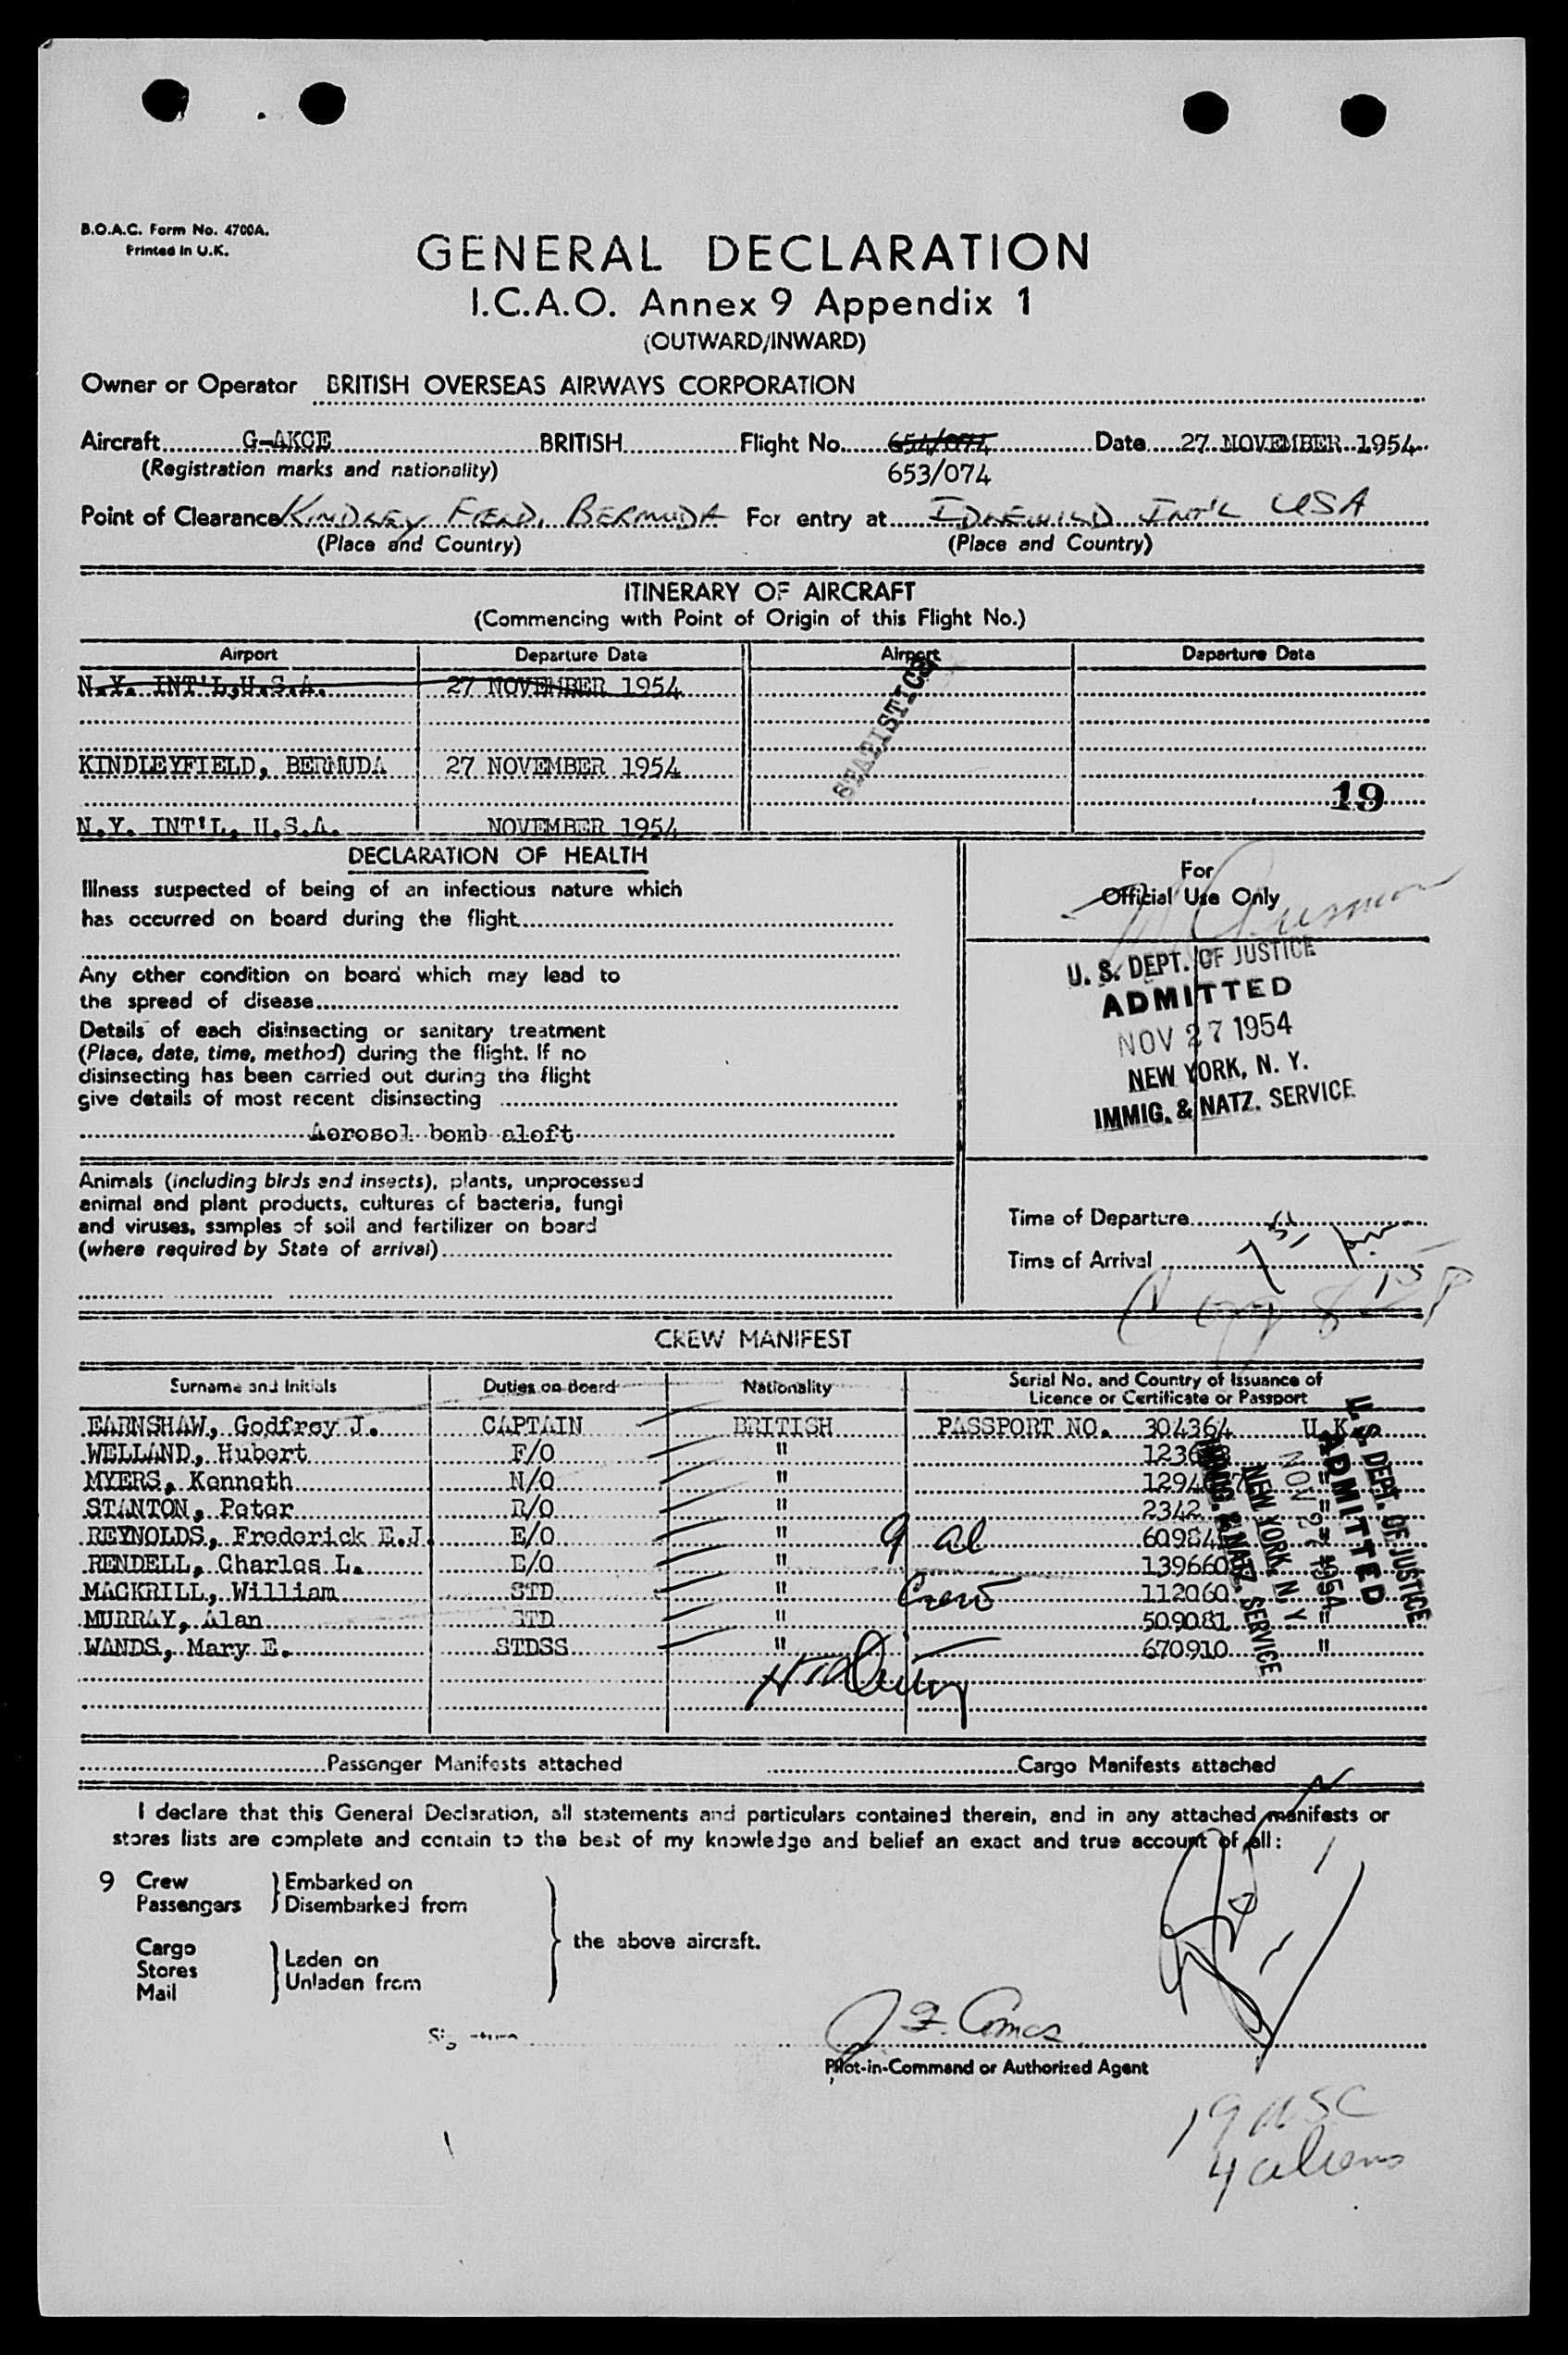 B.O.A.C. Form No. 4700A.
Printed in U.K.
GENERAL DECLARATION
I.C.A.O. Annex 9 Appendix 1
(OUTWARD/INWARD)
Owner or Operator BRITISH OVERSEAS AIRWAYS CORPORATION
Aircraft G-AKCE BRITISH Flight No. 654/074 Date 27 NOVEMBER 1954
(Registration marks and nationality) 653/074
Point of Clearance KINDLEY FIELD, BERMUDA For entry at IDLEWILD INT'L USA
(Place and Country) (Place and Country)
ITINERARY OF AIRCRAFT
(Commencing with Point of Origin of this Flight No.)
Airport Departure Date Airport Departure Date
N.Y. INT'L,U.S.A. 27 NOVEMBER 1954
STATISTICS
KINDLEYFIELD, BERMUDA 27 NOVEMBER 1954
19
N.Y. INT'L, U.S.A. NOVEMBER 1954
DECLARATION OF HEALTH
Illness suspected of being of an infectious nature which
has occurred on board during the flight
Any other condition on board which may lead to
the spread of disease
Details of each disinsecting or sanitary treatment
(Place, date, time, method) during the flight. If no
disinsecting has been carried out during the flight
give details of most recent disinsecting
Aerosol bomb aloft
For
Official Use Only
U. S. DEPT. OF JUSTICE
ADMITTED
NOV 27 1954
NEW YORK, N. Y.
IMMIG. & NATZ. SERVICE
Animals (including birds and insects), plants, unprocessed
animal and plant products, cultures of bacteria, fungi
and viruses, samples of soil and fertilizer on board
(where required by State of arrival)
Time of Departure
Time of Arrival
CREW MANIFEST
Surname and Initials Duties on Board Nationality Serial No. and Country of Issuance of
Licence or Certificate or Passport
EARNSHAW, Godfrey J. CAPTAIN BRITISH PASSPORT NO. 304364 U.K.
WELLAND, Hubert F/O "
MYERS, Kenneth N/O " "
STANTON, Peter R/O " "
REYNOLDS, Frederick E.J. E/O " "
RENDELL, Charles L. E/O " 139660 "
MACKRILL, William STD " 112060 "
MURRAY, Alan STD " 509081 "
WANDS, Mary E. STDSS " 670910 "
9 al
Crew
U. S. DEPT. OF JUSTICE
ADMITTED
NOV 27 1954
NEW YORK, N. Y.
IMMIG. & NATZ. SERVICE
Passenger Manifests attached Cargo Manifests attached
I declare that this General Declaration, all statements and particulars contained therein, and in any attached manifests or
stores lists are complete and contain to the best of my knowledge and belief an exact and true account of all:
9 Crew Embarked on
Passengers Disembarked from
the above aircraft.
Cargo
Stores Laden on
Mail Unladen from
Signature
Pilot-in-Command or Authorized Agent
19 USC
4 aliens